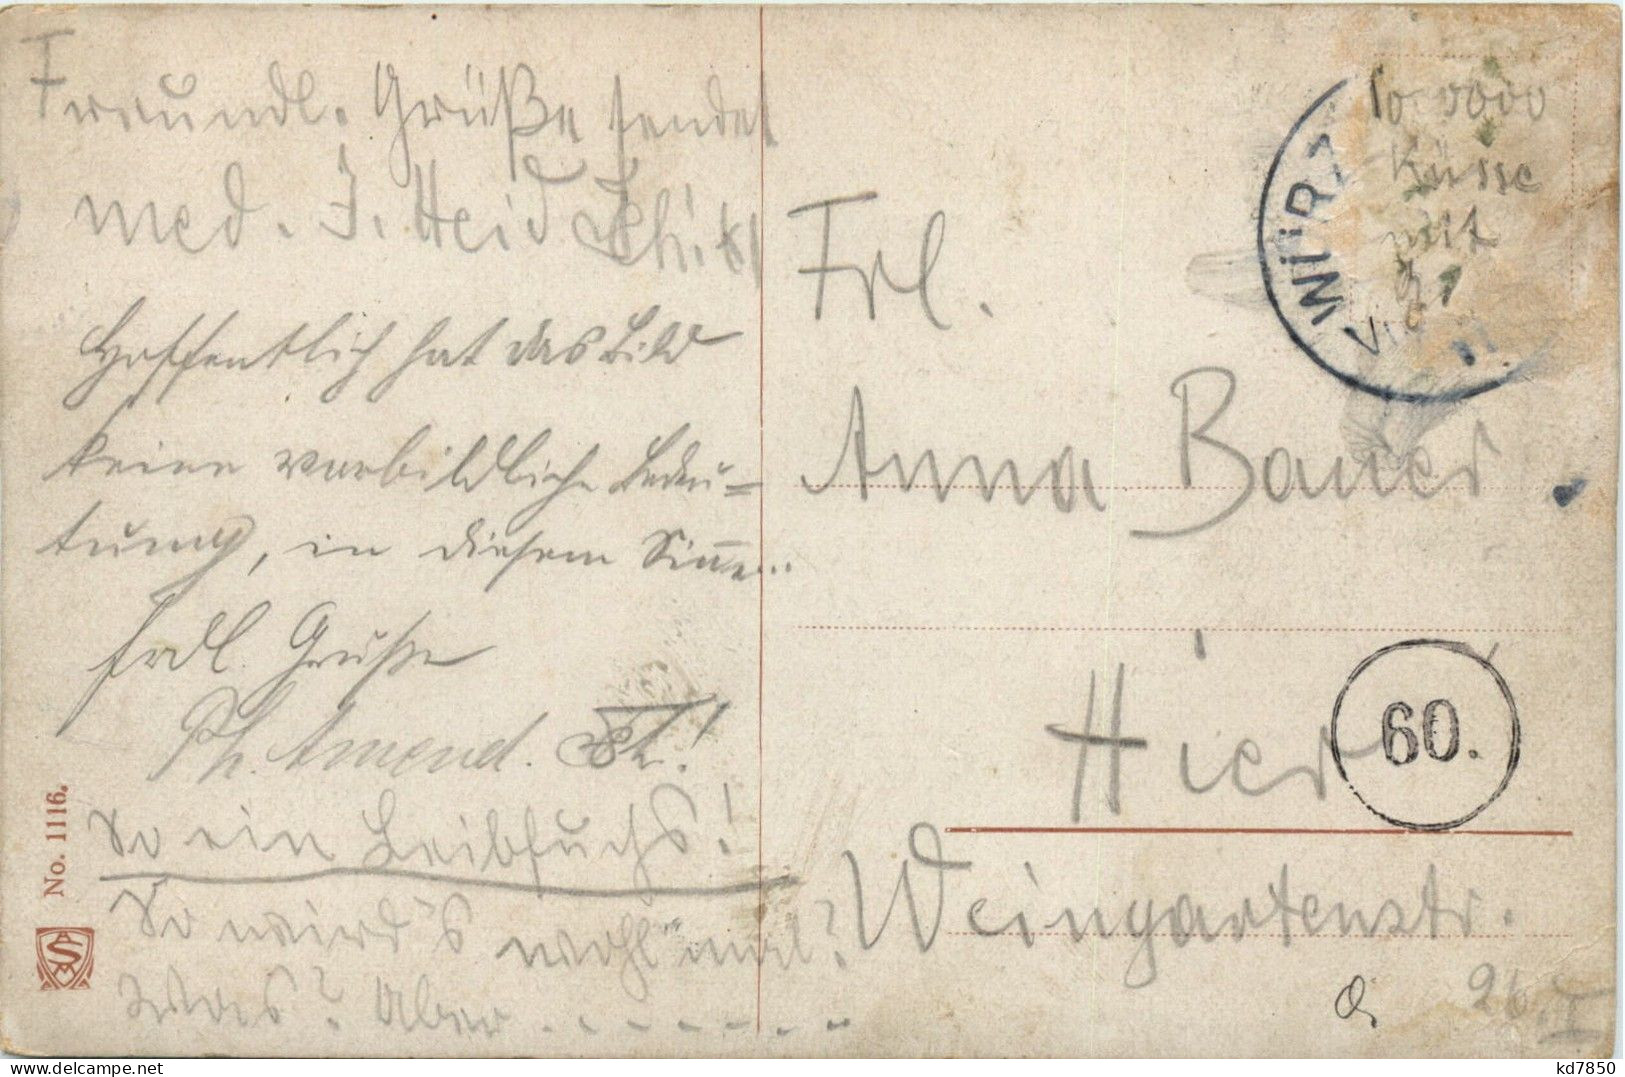 Freundl. Grüße sendet
med. J. Heid
Hoffentlich hat das Bild
keine vorbildliche Bedeu=
tung, in diesem Sinne...
frdl. Grüße
Ph. Amend.
So ein Leibfuchs!
So wird's wohl mal?
Was? Aber . - . - - - -
No. 1116.
Küsse
mit
WÜRZ
Frl.
Anna Bauer
Hier
60.
Weingartenstr.
26. I
kd7850